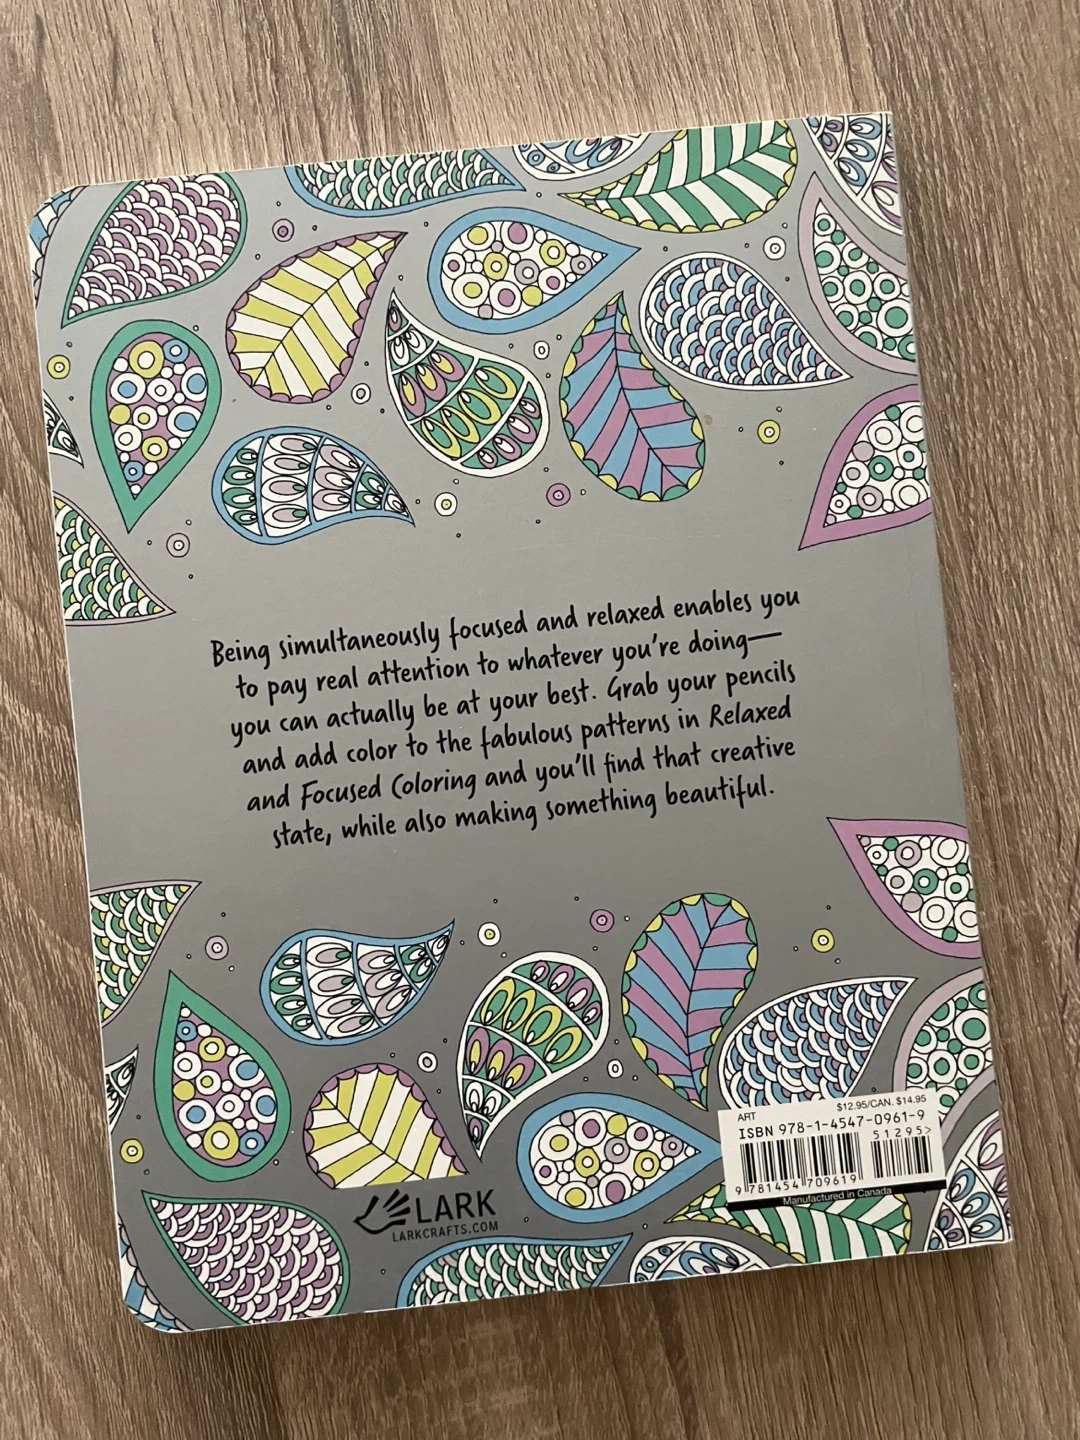 Being simultaneously focused and relaxed enables you
to pay real attention to whatever you're doing—
you can actually be at your best. Grab your pencils
and add color to the fabulous patterns in Relaxed
and Focused Coloring and you'll find that creative
state, while also making something beautiful.
ART $12.95/CAN. $14.95
ISBN 978-1-4547-0961-9
51295>
9 781454 709619
Manufactured in Canada
LARK
LARKCRAFTS.COM